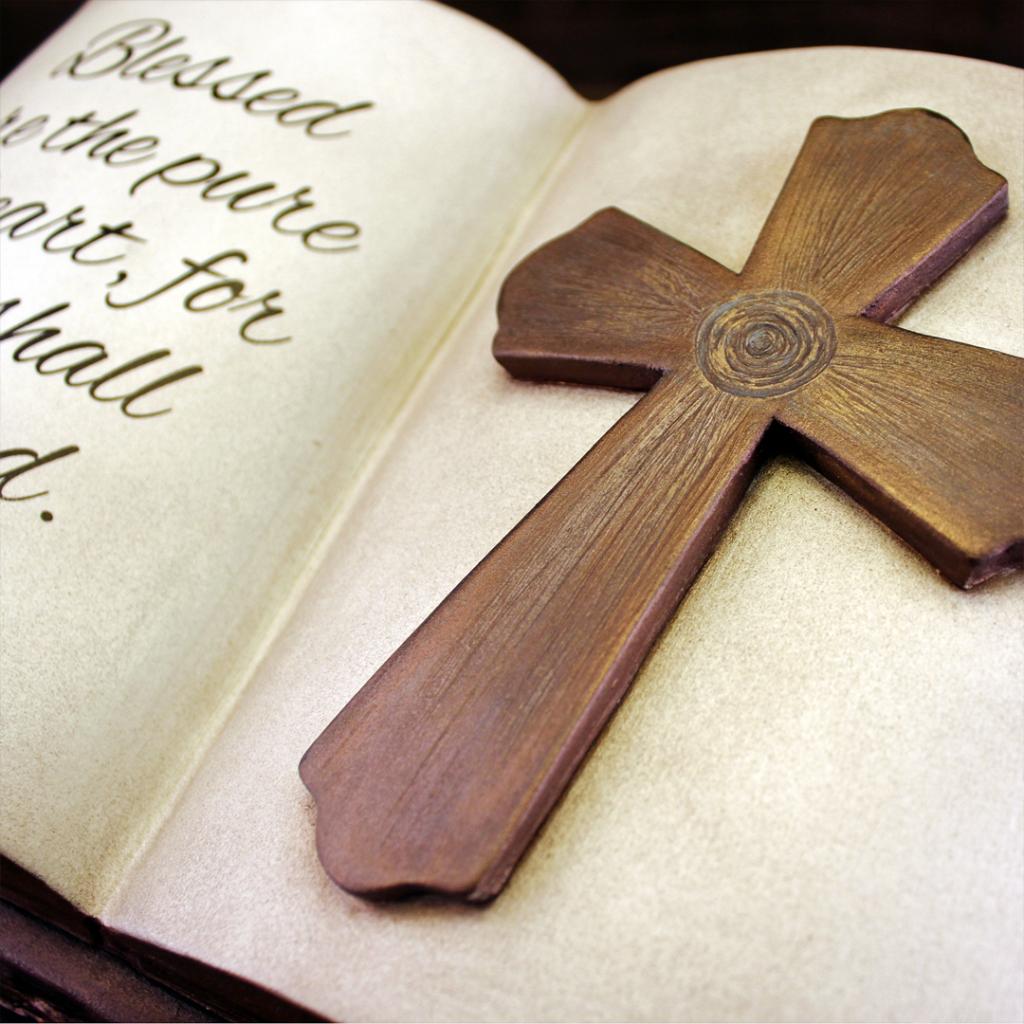 Blessed
re the pure
eart, for
shall
d.